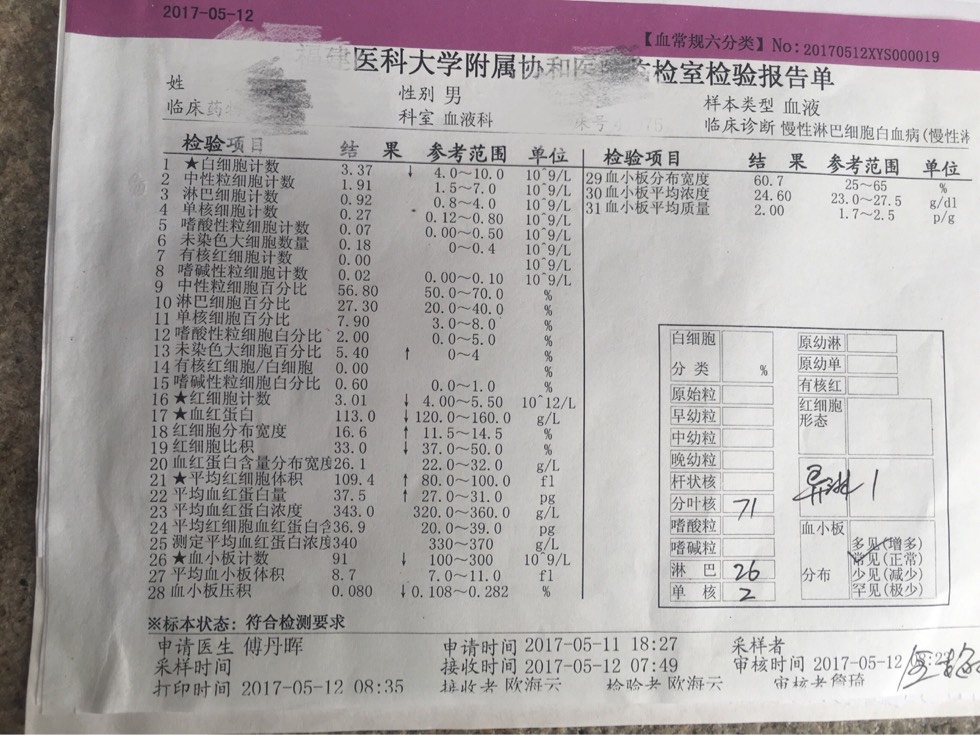 2017-05-12
【血常规六分类】No:20170512XYS000019
医科大学附属协和医 检室检验报告单
姓 性别 男 样本类型 血液
临床药 科室 血液科 75 临床诊断 慢性淋巴细胞白血病(慢性淋
检验项目 结 果 参考范围 单位
1 ★白细胞计数 3.37 ↓ 4.0～10.0 10^9/L
2 中性粒细胞计数 1.91 1.5～7.0 10^9/L
3 淋巴细胞计数 0.92 0.8～4.0 10^9/L
4 单核细胞计数 0.27 0.12～0.80 10^9/L
5 嗜酸性粒细胞计数 0.07 0.00～0.50 10^9/L
6 未染色大细胞数量 0.18 0～0.4 10^9/L
7 有核红细胞计数 0.00 10^9/L
8 嗜碱性粒细胞计数 0.02 0.00～0.10 10^9/L
9 中性粒细胞百分比 56.80 50.0～70.0 %
10 淋巴细胞百分比 27.30 20.0～40.0 %
11 单核细胞百分比 7.90 3.0～8.0 %
12 嗜酸性粒细胞白分比 2.00 0.0～5.0 %
13 未染色大细胞百分比 5.40 ↑ 0～4 %
14 有核红细胞/白细胞 0.00 %
15 嗜碱性粒细胞白分比 0.60 0.0～1.0 %
16 ★红细胞计数 3.01 ↓ 4.00～5.50 10^12/L
17 ★血红蛋白 113.0 ↓ 120.0～160.0 g/L
18 红细胞分布宽度 16.6 ↑ 11.5～14.5 %
19 红细胞比积 33.0 ↓ 37.0～50.0 %
20 血红蛋白含量分布宽度 26.1 22.0～32.0 g/L
21 ★平均红细胞体积 109.4 ↑ 80.0～100.0 fl
22 平均血红蛋白量 37.5 ↑ 27.0～31.0 pg
23 平均血红蛋白浓度 343.0 320.0～360.0 g/L
24 平均红细胞血红蛋白含 36.9 20.0～39.0 pg
25 测定平均血红蛋白浓度 340 330～370 g/L
26 ★血小板计数 91 ↓ 100～300 10^9/L
27 平均血小板体积 8.7 7.0～11.0 fl
28 血小板压积 0.080 ↓ 0.108～0.282 %
检验项目 结 果 参考范围 单位
29 血小板分布宽度 60.7 25～65 %
30 血小板平均浓度 24.60 23.0～27.5 g/dl
31 血小板平均质量 2.00 1.7～2.5 p/g
白细胞
分 类 %
原始粒
早幼粒
中幼粒
晚幼粒
杆状核
分叶核 71
嗜酸粒
嗜碱粒
淋 巴 26
单 核 2
原幼淋
原幼单
有核红
红细胞
形态
异淋 1
血小板
分布
多见(增多)
常见(正常)
少见(减少)
罕见(极少)
※标本状态：符合检测要求
申请医生 傅丹晖 申请时间 2017-05-11 18:27 采样者
采样时间 接收时间 2017-05-12 07:49 审核时间 2017-05-12
打印时间 2017-05-12 08:35 接收者 欧海云 检验者 欧海云 审核者 詹琦